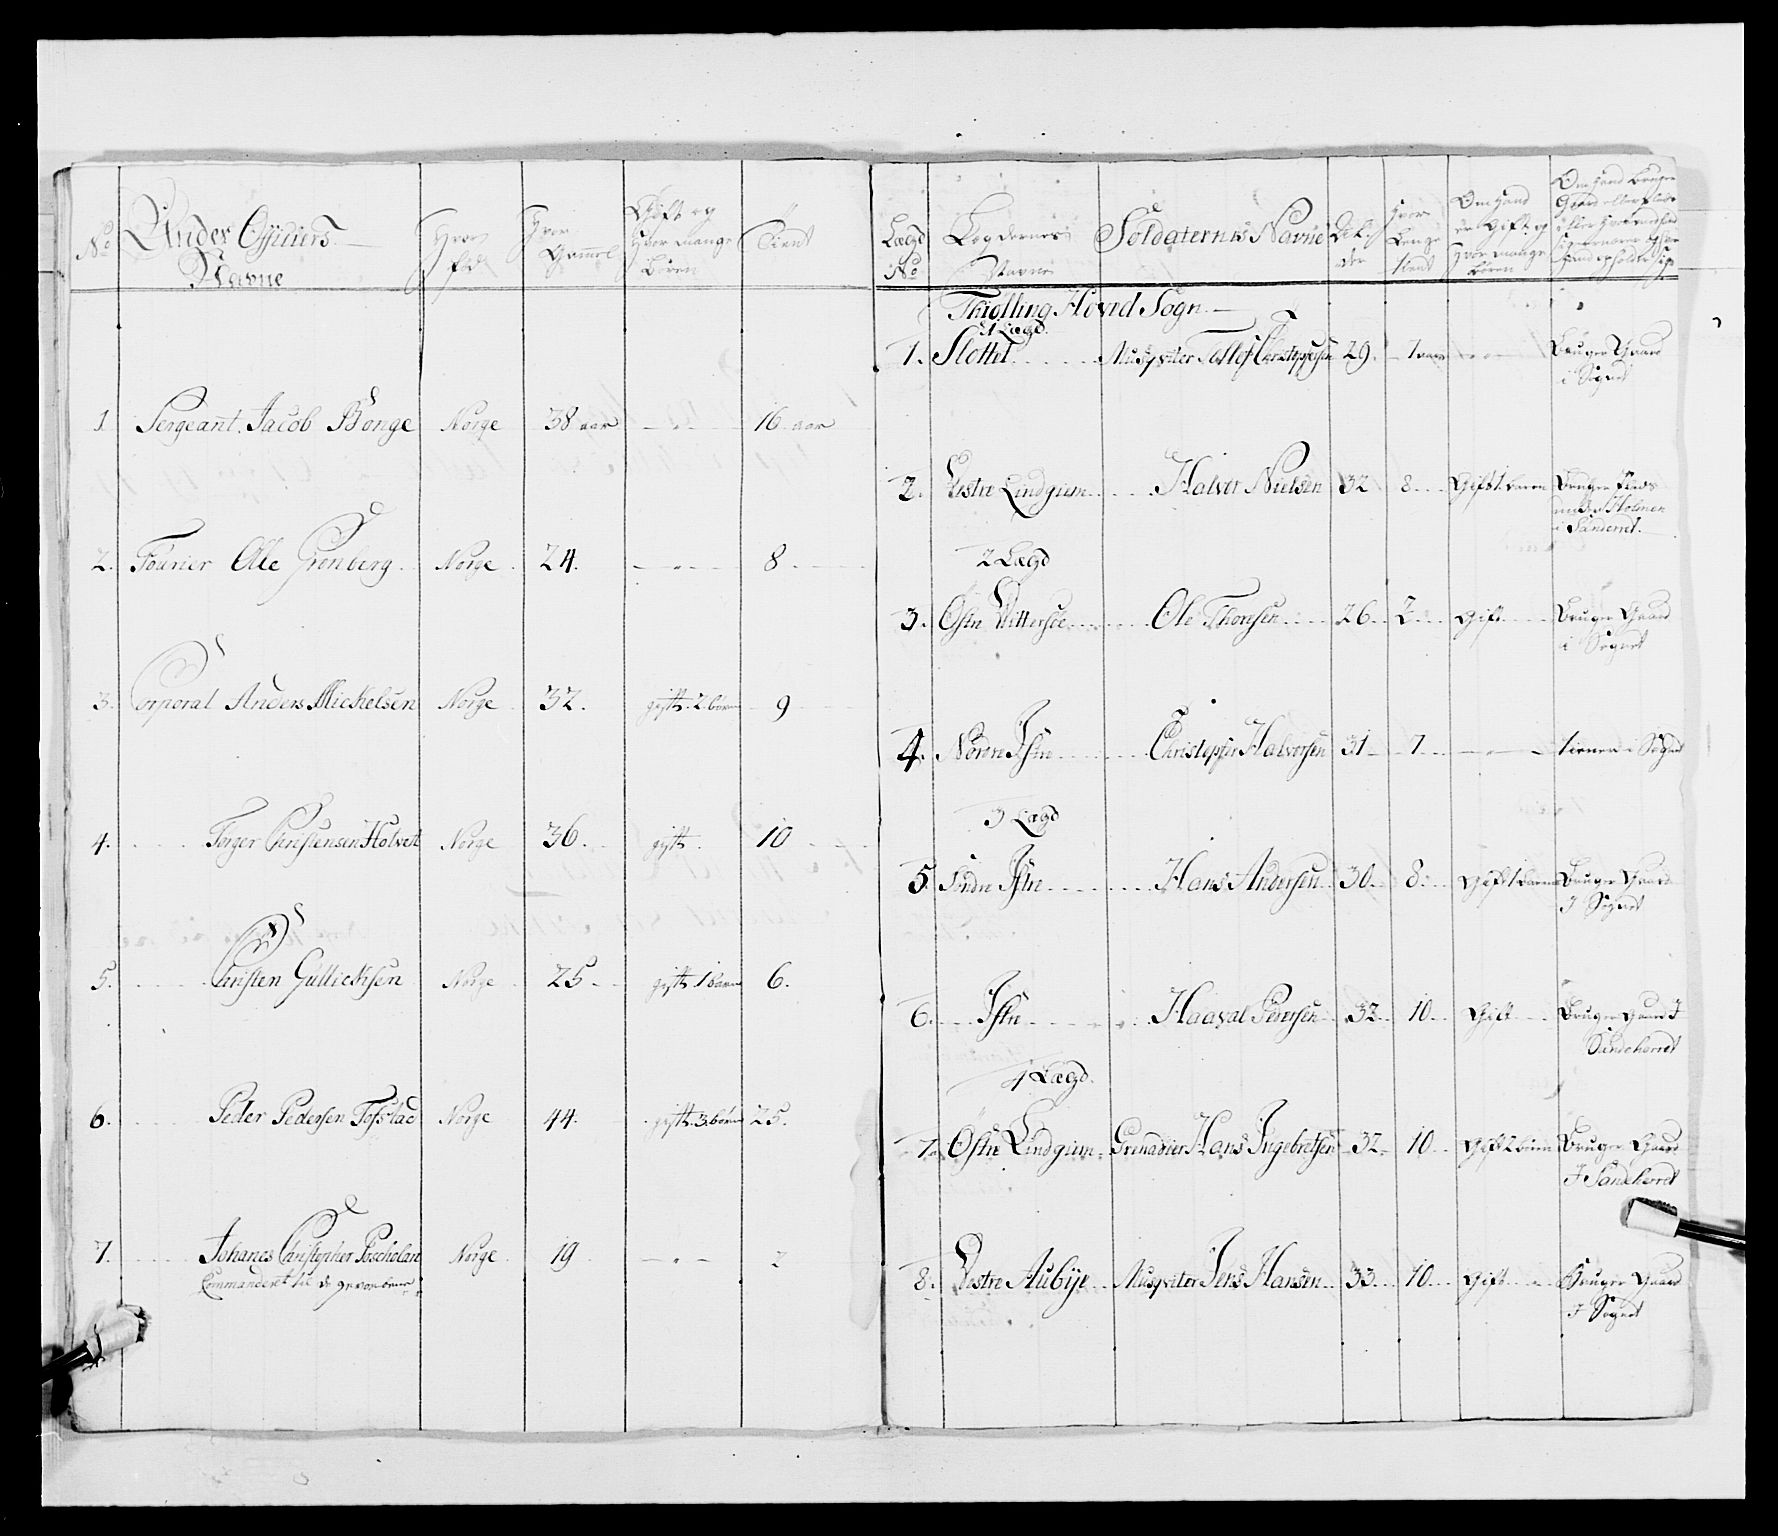 No
Under Officiers
Navne
Hvor
fød
Hvor
Gammel
Gift og
Hvor mange
Børen
Tient
1. Sergeant Jacob Bonge Norge 38 aar — " — 16 aar
2. Fourier Olle Gronberg Norge 24. — " — 8
3. Corporal Anders Mickelsen Norge 32. gift. 2 børn 9
4. Torger Christensen Holvet Norge 36. gift. 10
5. Christen Gullichsen Norge 25 gift. 1 barn 6.
6. Peder Pedersen Tofstad Norge 44. gift. 3 børn 25.
7. Johanes Christopher Norge 19 — " — 2
Commanderet til de
Lægd
No
Legdernes
Navne
Soldaternes Navne
Al-
der
Hvor
Lenge
tient
Om Hand
er Gift og
Hvor mange
Børen
Om Hand Bruger
Gaard eller Plads
Hand opholder sig
Thiølling Hoved Sogn
1 Lægd.
1. Slottet Musqviter Tollef Christophersen 29. 7 aar — " — Bruger Gaard
i Sognet
2. Vestre Lindgium Halvor Nielsen 32 8 Gift 1 barn Bruger Plads
under Holmen
i Sanderret.
2 Lægd
3. Østre Vittersøe Ole Thorsen 26 2 Gift Bruger Gaard
i Sognet
4. Nordre Istre Christopher Halvorsen 31 7 — " — tiener i Sognet
3 Lægd
5. Søndre Istre Hans Andersen 30 8 Gift 1 barn Bruger Gaard
I Sognet
6. Istre Haaval Pedersen 32 10 Gift Bruger Gaard I
Sandeherret
4 Lægd.
7. Østre Lindgium Grenadier Hans Ingebretsen 32 10 Gift 2 børen Bruger Gaard
I Sandeherret
8. Vestre Aubÿe Musqviter Jens Hansen 33 10 Gift Bruger Gaard
I Sognet